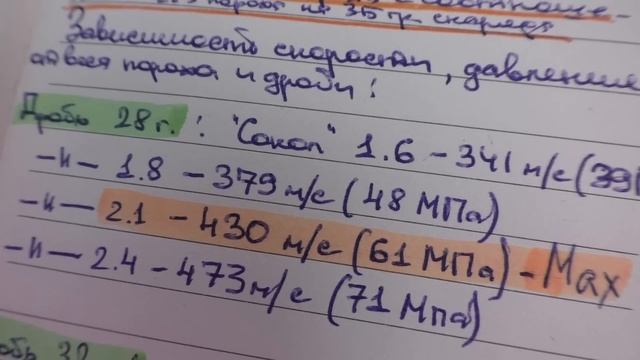 пороха на 35 гр. снаряда
Зависимость скорости, давление
от веса пороха и дроби:
Дробь 28 г. : "Сокол" 1.6 – 341 м/с (39
–〃– 1.8 – 379 м/с (48 МПа)
–〃– 2.1 – 430 м/с (61 МПа) – Max
–〃– 2.4 – 473 м/с (71 Мпа)